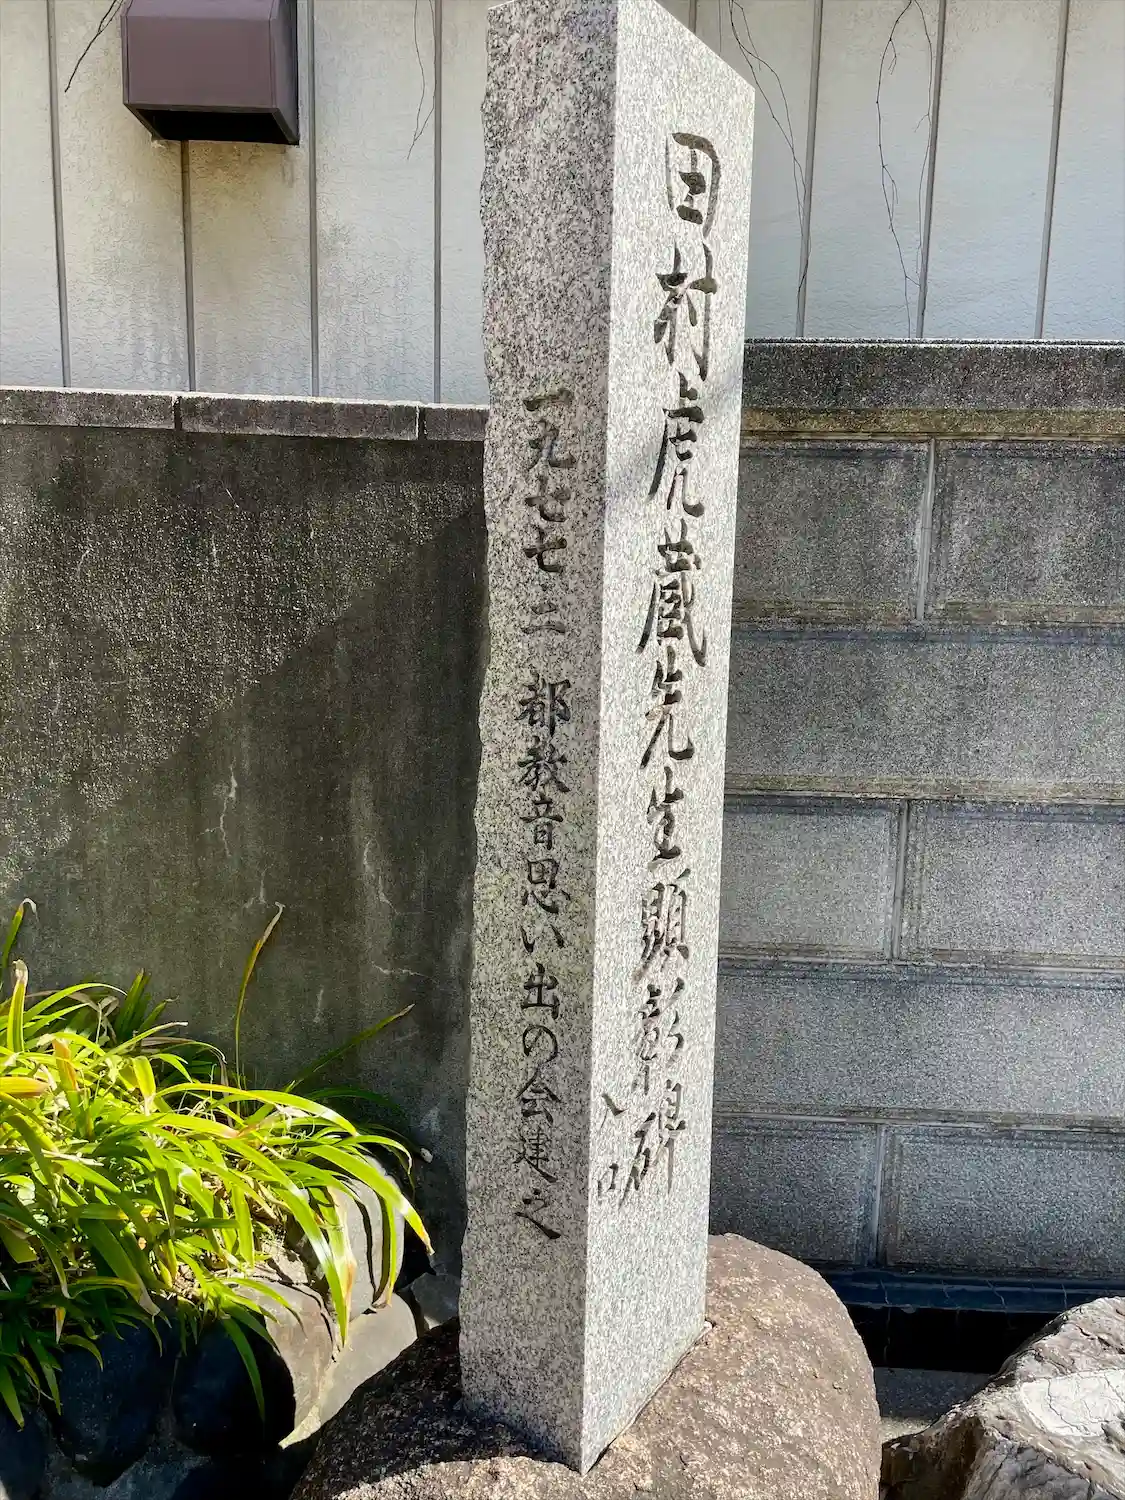 田村虎蔵先生顕彰碑
一九七七・二 都教音思い出の会建之